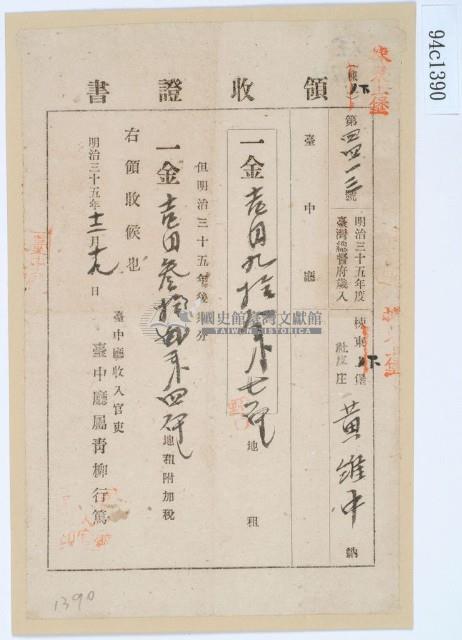 94c1390
領收證書
第四四一三號
明治三十五年度
臺灣總督府歲入
棟東下堡
庄
黃維中
納
臺中廳
一金壱円九拾
七
地租
但明治三十五年後期分
一金壱円參拾四
四
地租附加稅
右領收候也
明治三十五年十二月十九日
臺中廳收入官吏
臺中廳屬青柳行篤
國史館臺灣文獻館
TAIWAN HISTORICA
1390